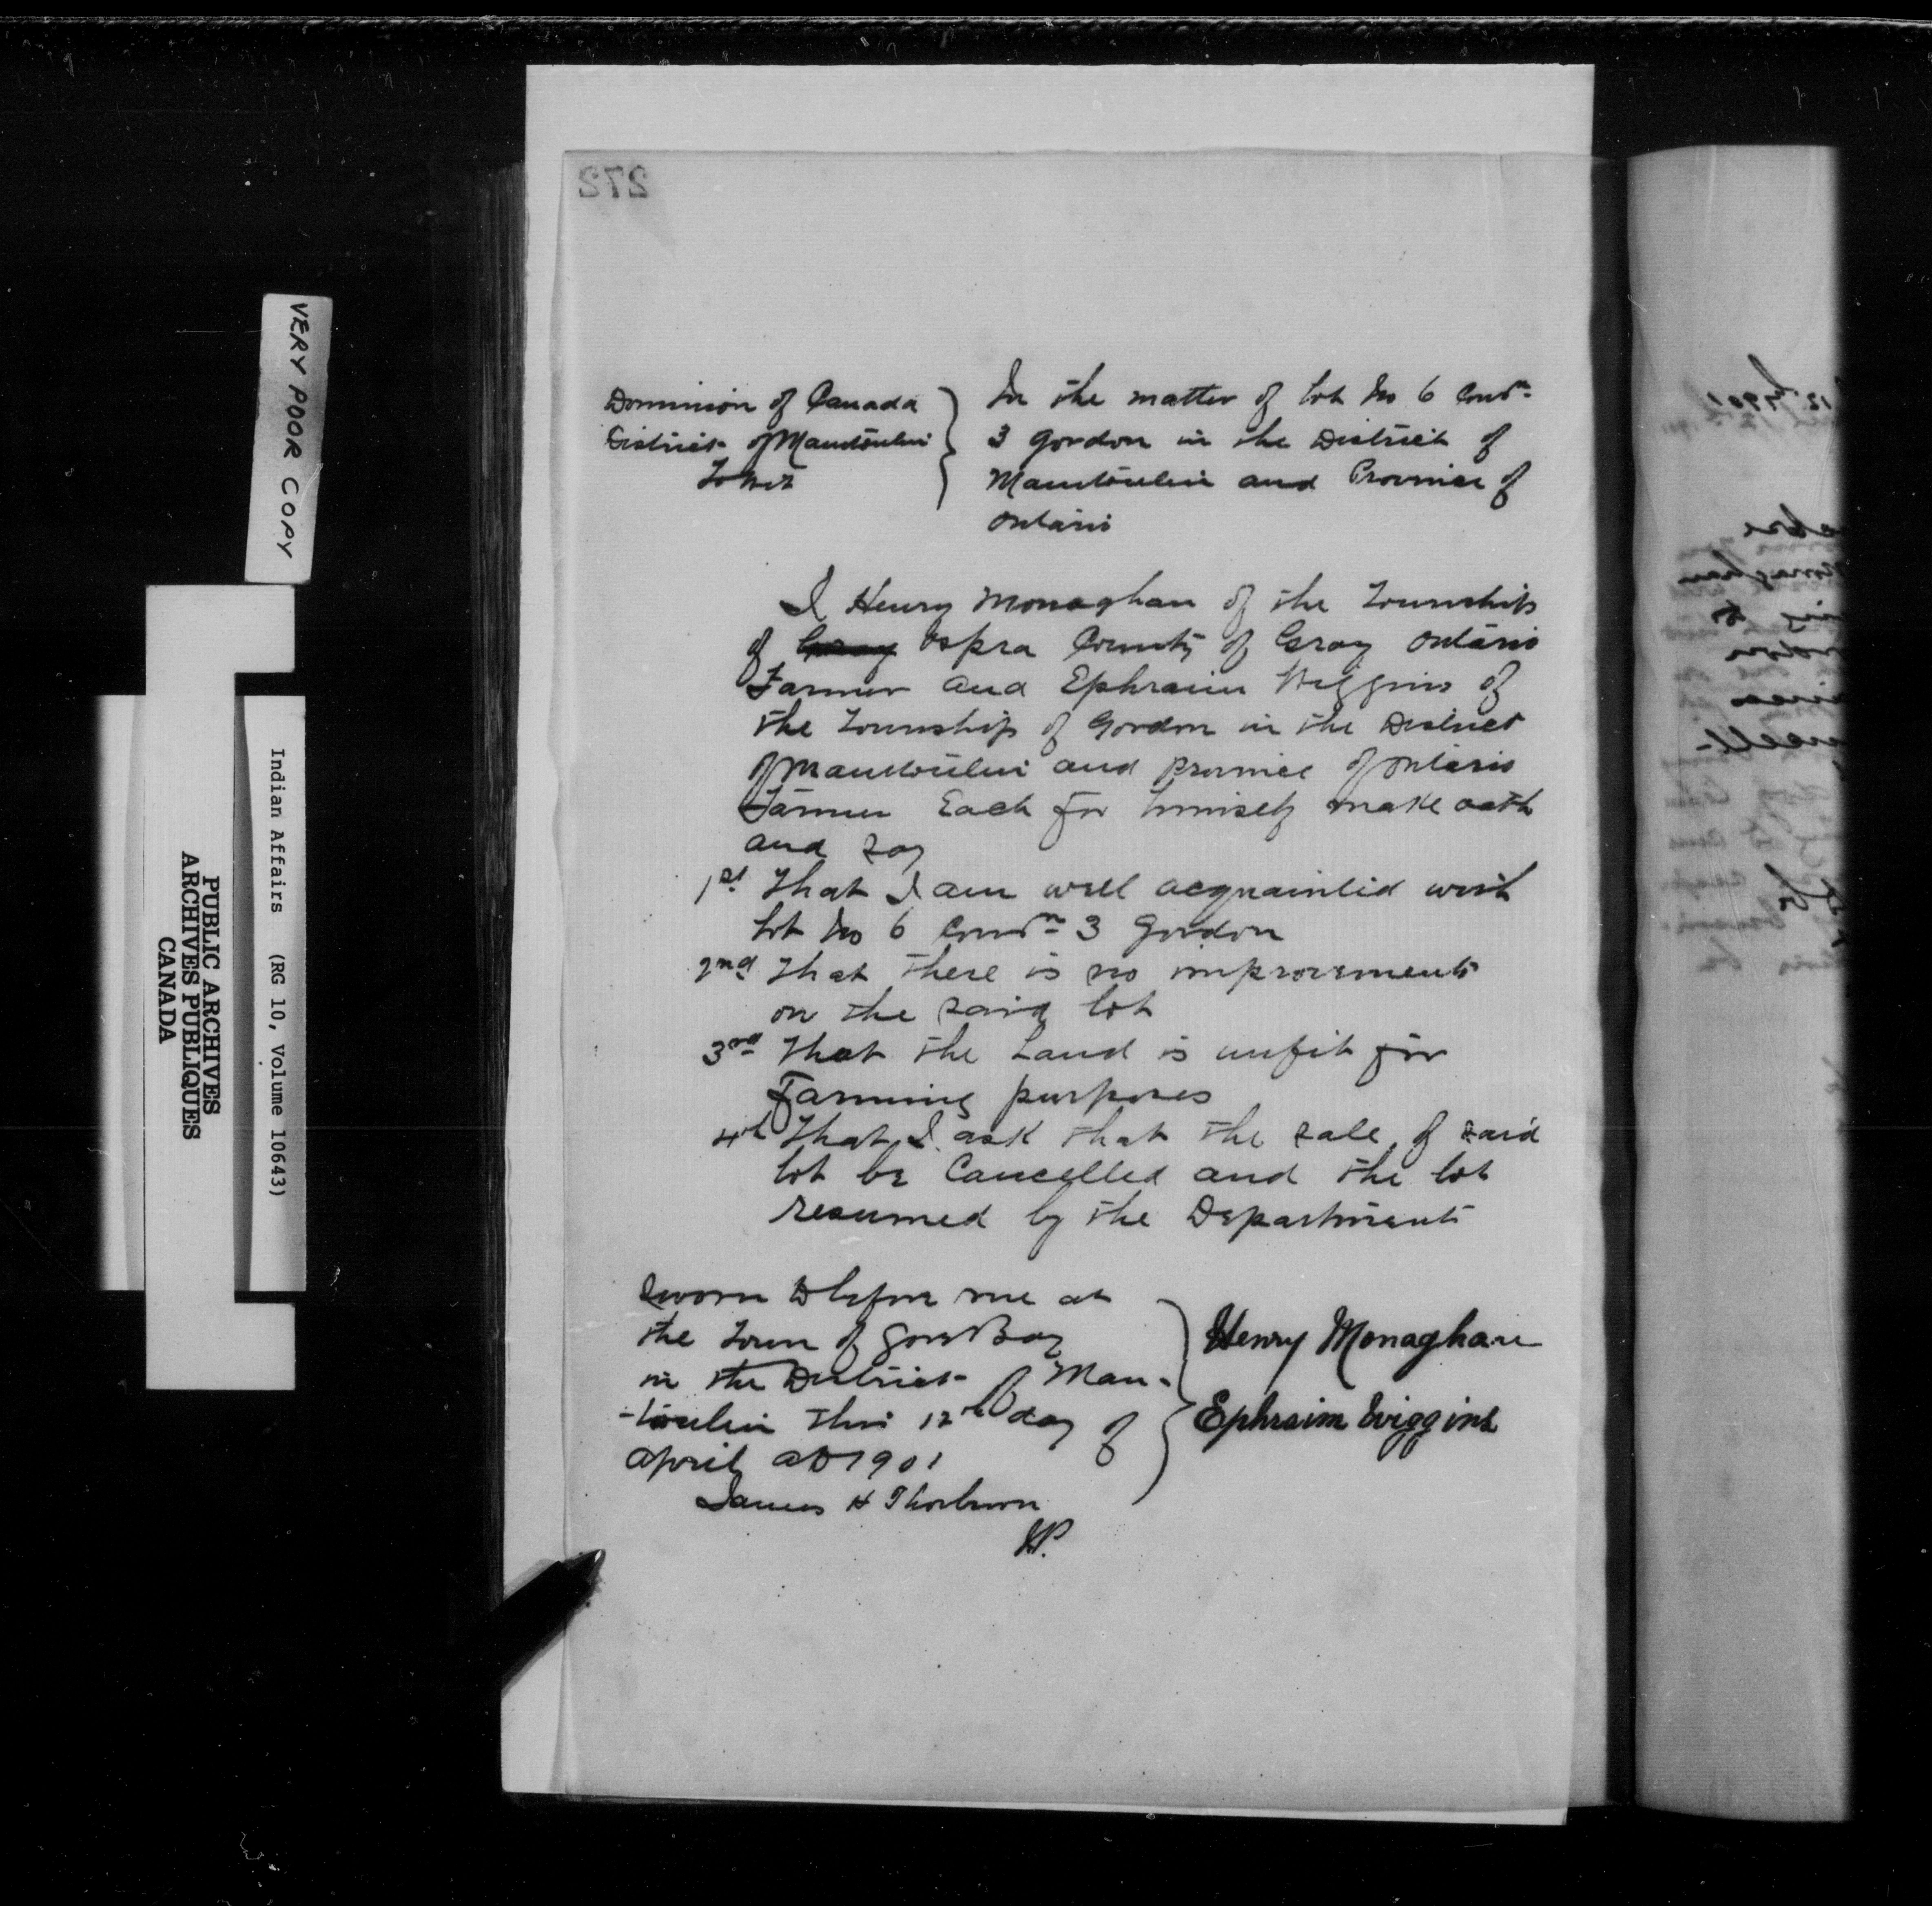 272
Dominion of Canada
District of Manitoulin
To Wit
In the matter of lot No 6 Conn
3 Gordon in the District of
Manitoulin and Province of
Ontario
I Henry Monaghan of the Township
of Gray Ospra County of Gray Ontario
Farmer and Ephraim Wiggins of
the Township of Gordon in the District
of Manitoulin and Province of Ontario
Farmer Each for himself make oath
and say
1st That I am well acquainted with
lot No 6 Conn 3 Gordon
2nd That there is no improvements
on the said lot
3rd That the Land is unfit for
Farming purposes
4th That I ask that the sale of said
lot be Cancelled and the lot
resumed by the Department
Sworn to before me at
the Town of Gore Bay
in the District of Man-
-itoulin this 12th day of
April AD 1901
James H Thorburn
JP.
Henry Monaghan
Ephraim Wiggins
VERY POOR COPY
Indian Affairs (RG 10, Volume 10643)
PUBLIC ARCHIVES
ARCHIVES PUBLIQUES
CANADA